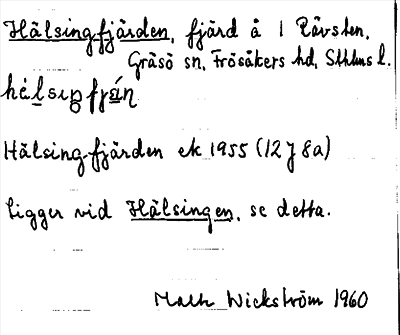 Hälsingfjärden, fjärd å 1 Rävsten,
Gräsö sn, Frösåkers hd, Sthlms l.
Hälsing-fjärden ek 1955 (12 J 8a)
Ligger vid Hälsingen, se detta.
Wickström 1960